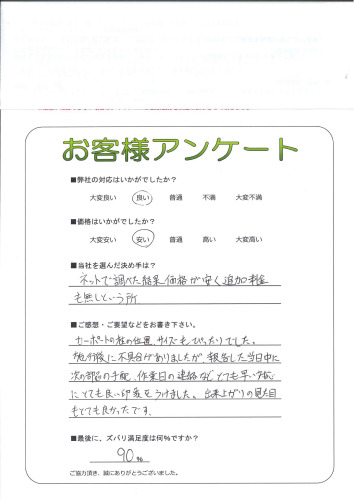 お客様アンケート
■弊社の対応はいかがでしたか？
大変良い 良い 普通 不満 大変不満
■価格はいかがでしたか？
大変安い 安い 普通 高い 大変高い
■当社を選んだ決め手は？
ネットで調べた結果価格が安く追加料金
も無しという所
■ご感想・ご要望などをお書き下さい。
カーポートの柱の位置、サイズもぴったりでした。
に不具合がありましたが、報告した当日中に
次の部品の手配、作業日の連絡などとても早い対応
にとても良い印象をうけました。出来上がりの見た目
もとても良かったです。
■最後に、ズバリ満足度は何％ですか？
90％
ご協力頂き、誠にありがとうございました。